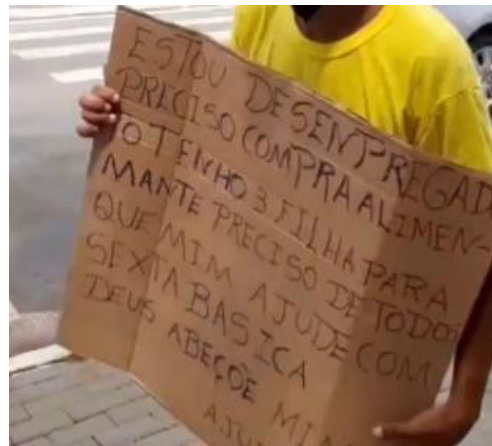 ESTOU DESENPREGAD
PRECISO COMPRA ALIMEN-
TO TENHO 3 FILHA PARA
MANTE PRECISO DE TODOS
QUE MIM AJUDE COM
SEXTA BASICA
DEUS ABEÇOE MIM
AJU